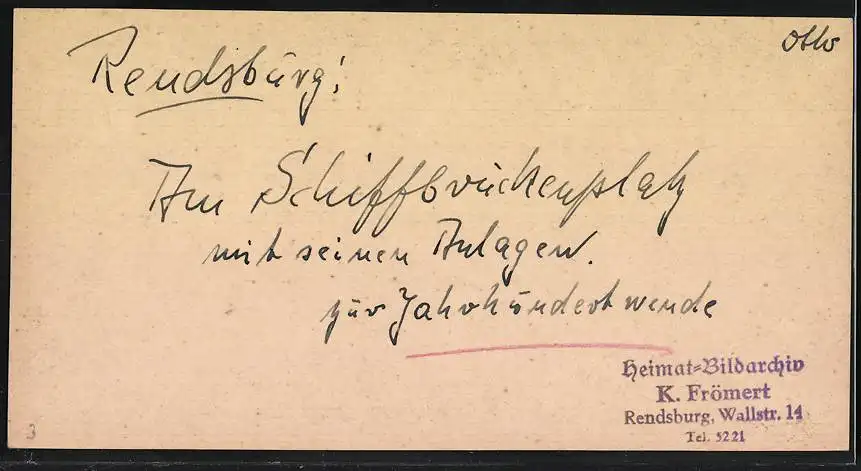 Otto
Rendsburg:
Am Schiffbrückenplatz
mit seinen Anlagen.
zur Jahrhundertwende
Heimat=Bildarchiv
K. Frömert
Rendsburg, Wallstr. 14
Tel. 5221
3